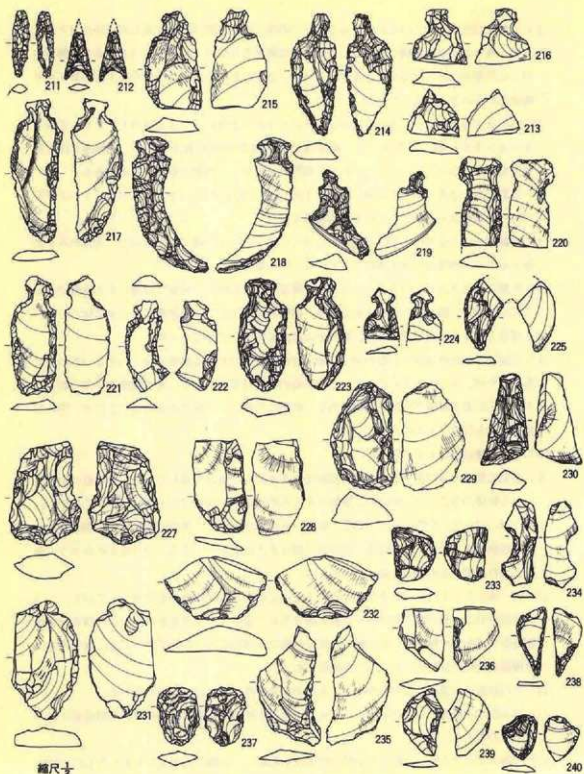 211 212 215 214 216
213
217 218 219 220
221 222 223 224 225
227 228 229 230
232 233 234
231 237 235 236 238
239 240
縮尺½